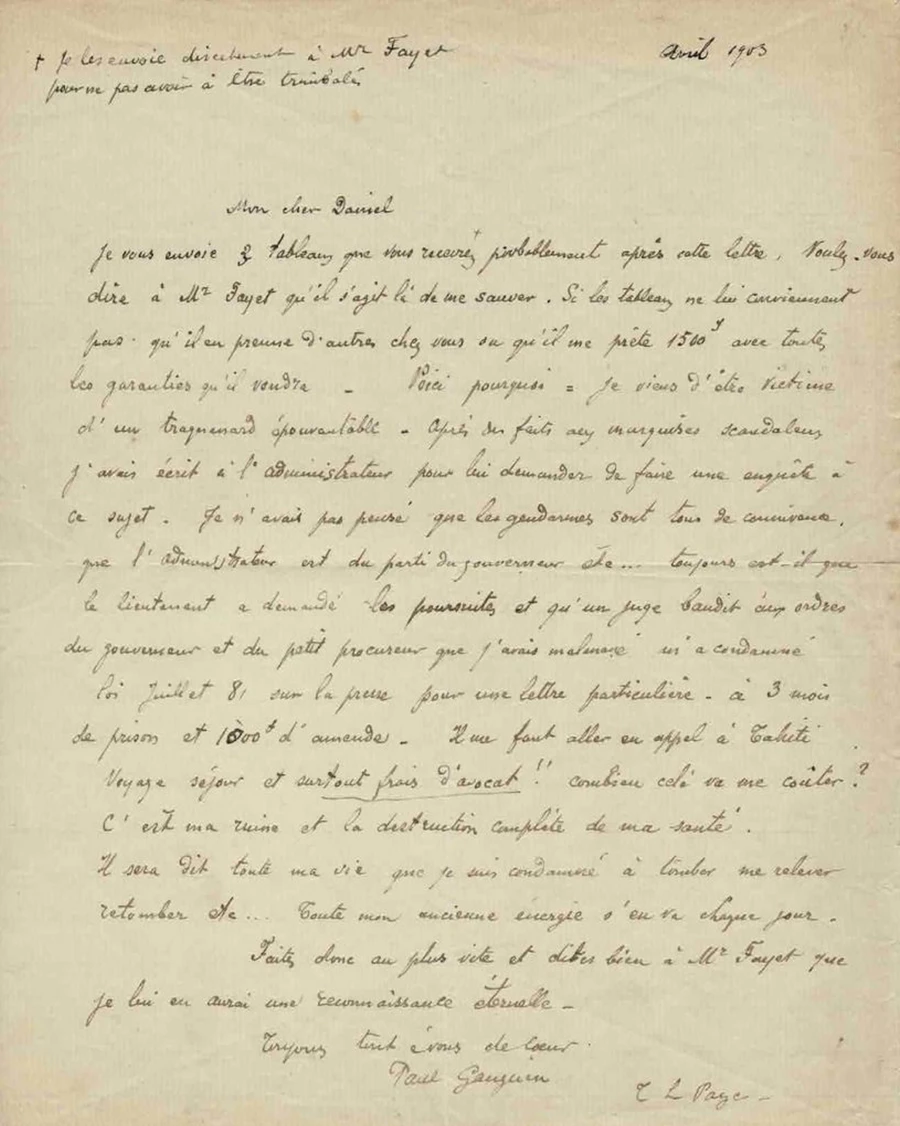 + Je les envoie directement à Mr Fayet
Avril 1903
pour ne pas avoir à être trimbalés
Mon cher Daniel
Je vous envoie 3 tableaux que vous recevrez + probablement après cette lettre. Voulez-vous
dire à Mr Fayet qu'il s'agit là de me sauver. Si les tableaux ne lui conviennent
pas. qu'il en prenne d'autres chez vous ou qu'il me prête 1500f avec toutes
les garanties qu'il voudra _ Voici pourquoi = Je viens d'être victime
d'un traquenard épouvantable _ Après des faits aux marquises scandaleux
j'avais écrit à l'administrateur pour lui demander de faire une enquête à
ce sujet. Je n'avais pas pensé que les gendarmes sont tous de connivence,
que l'administrateur est du parti du gouverneur etc... toujours est-il que
le lieutenant a demandé les poursuites et qu'un juge bandit aux ordres
du gouverneur et du petit procureur que j'avais malmené m'a condamné
loi Juillet 81 sur la presse pour une lettre particulière _ à 3 mois
de prison et 1000f d'amende _ Il me faut aller en appel à Tahiti
Voyage séjour et surtout frais d'avocat !! combien celà va me coûter ?
C'est ma ruine et la destruction complète de ma santé.
Il sera dit toute ma vie que je suis condamné à tomber me relever
retomber etc... Toute mon ancienne énergie s'en va chaque jour.
Faites donc au plus vite et dites bien à Mr Fayet que
je lui en aurai une reconnaissance éternelle _
Toujours tout à vous de coeur.
Paul Gauguin
T L Page _